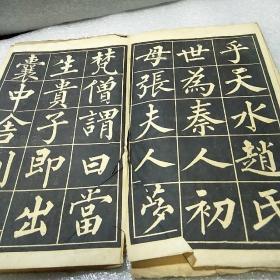 乎天水趙氏
世為秦人初
母張夫人夢
梵僧謂曰當
生貴子即出
囊中舍利